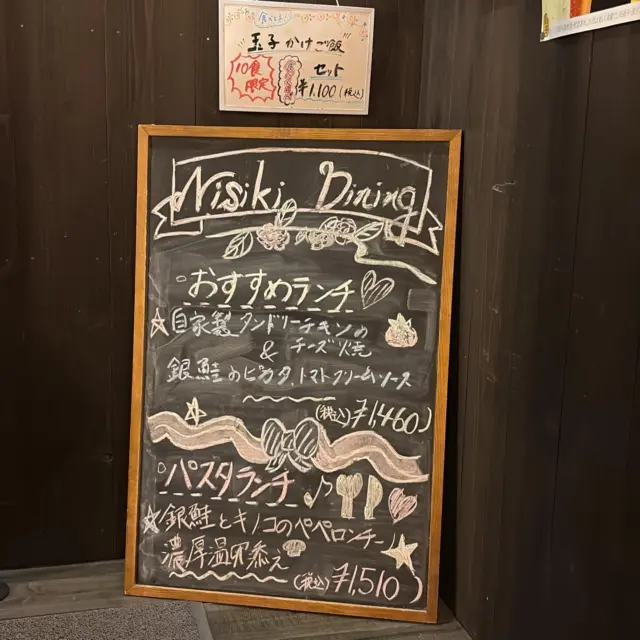 玉子かけご飯
10食
限定
セット
¥1,100(税込)
Nisiki Dining
おすすめランチ
☆自家製タンドリーチキンの
チーズ焼
&
銀鮭のピカタ、トマトクリームソース
(税込)¥1,460)
パスタランチ♪
☆銀鮭とキノコのペペロンチーノ
濃厚温卵添え
(税込)¥1,510)